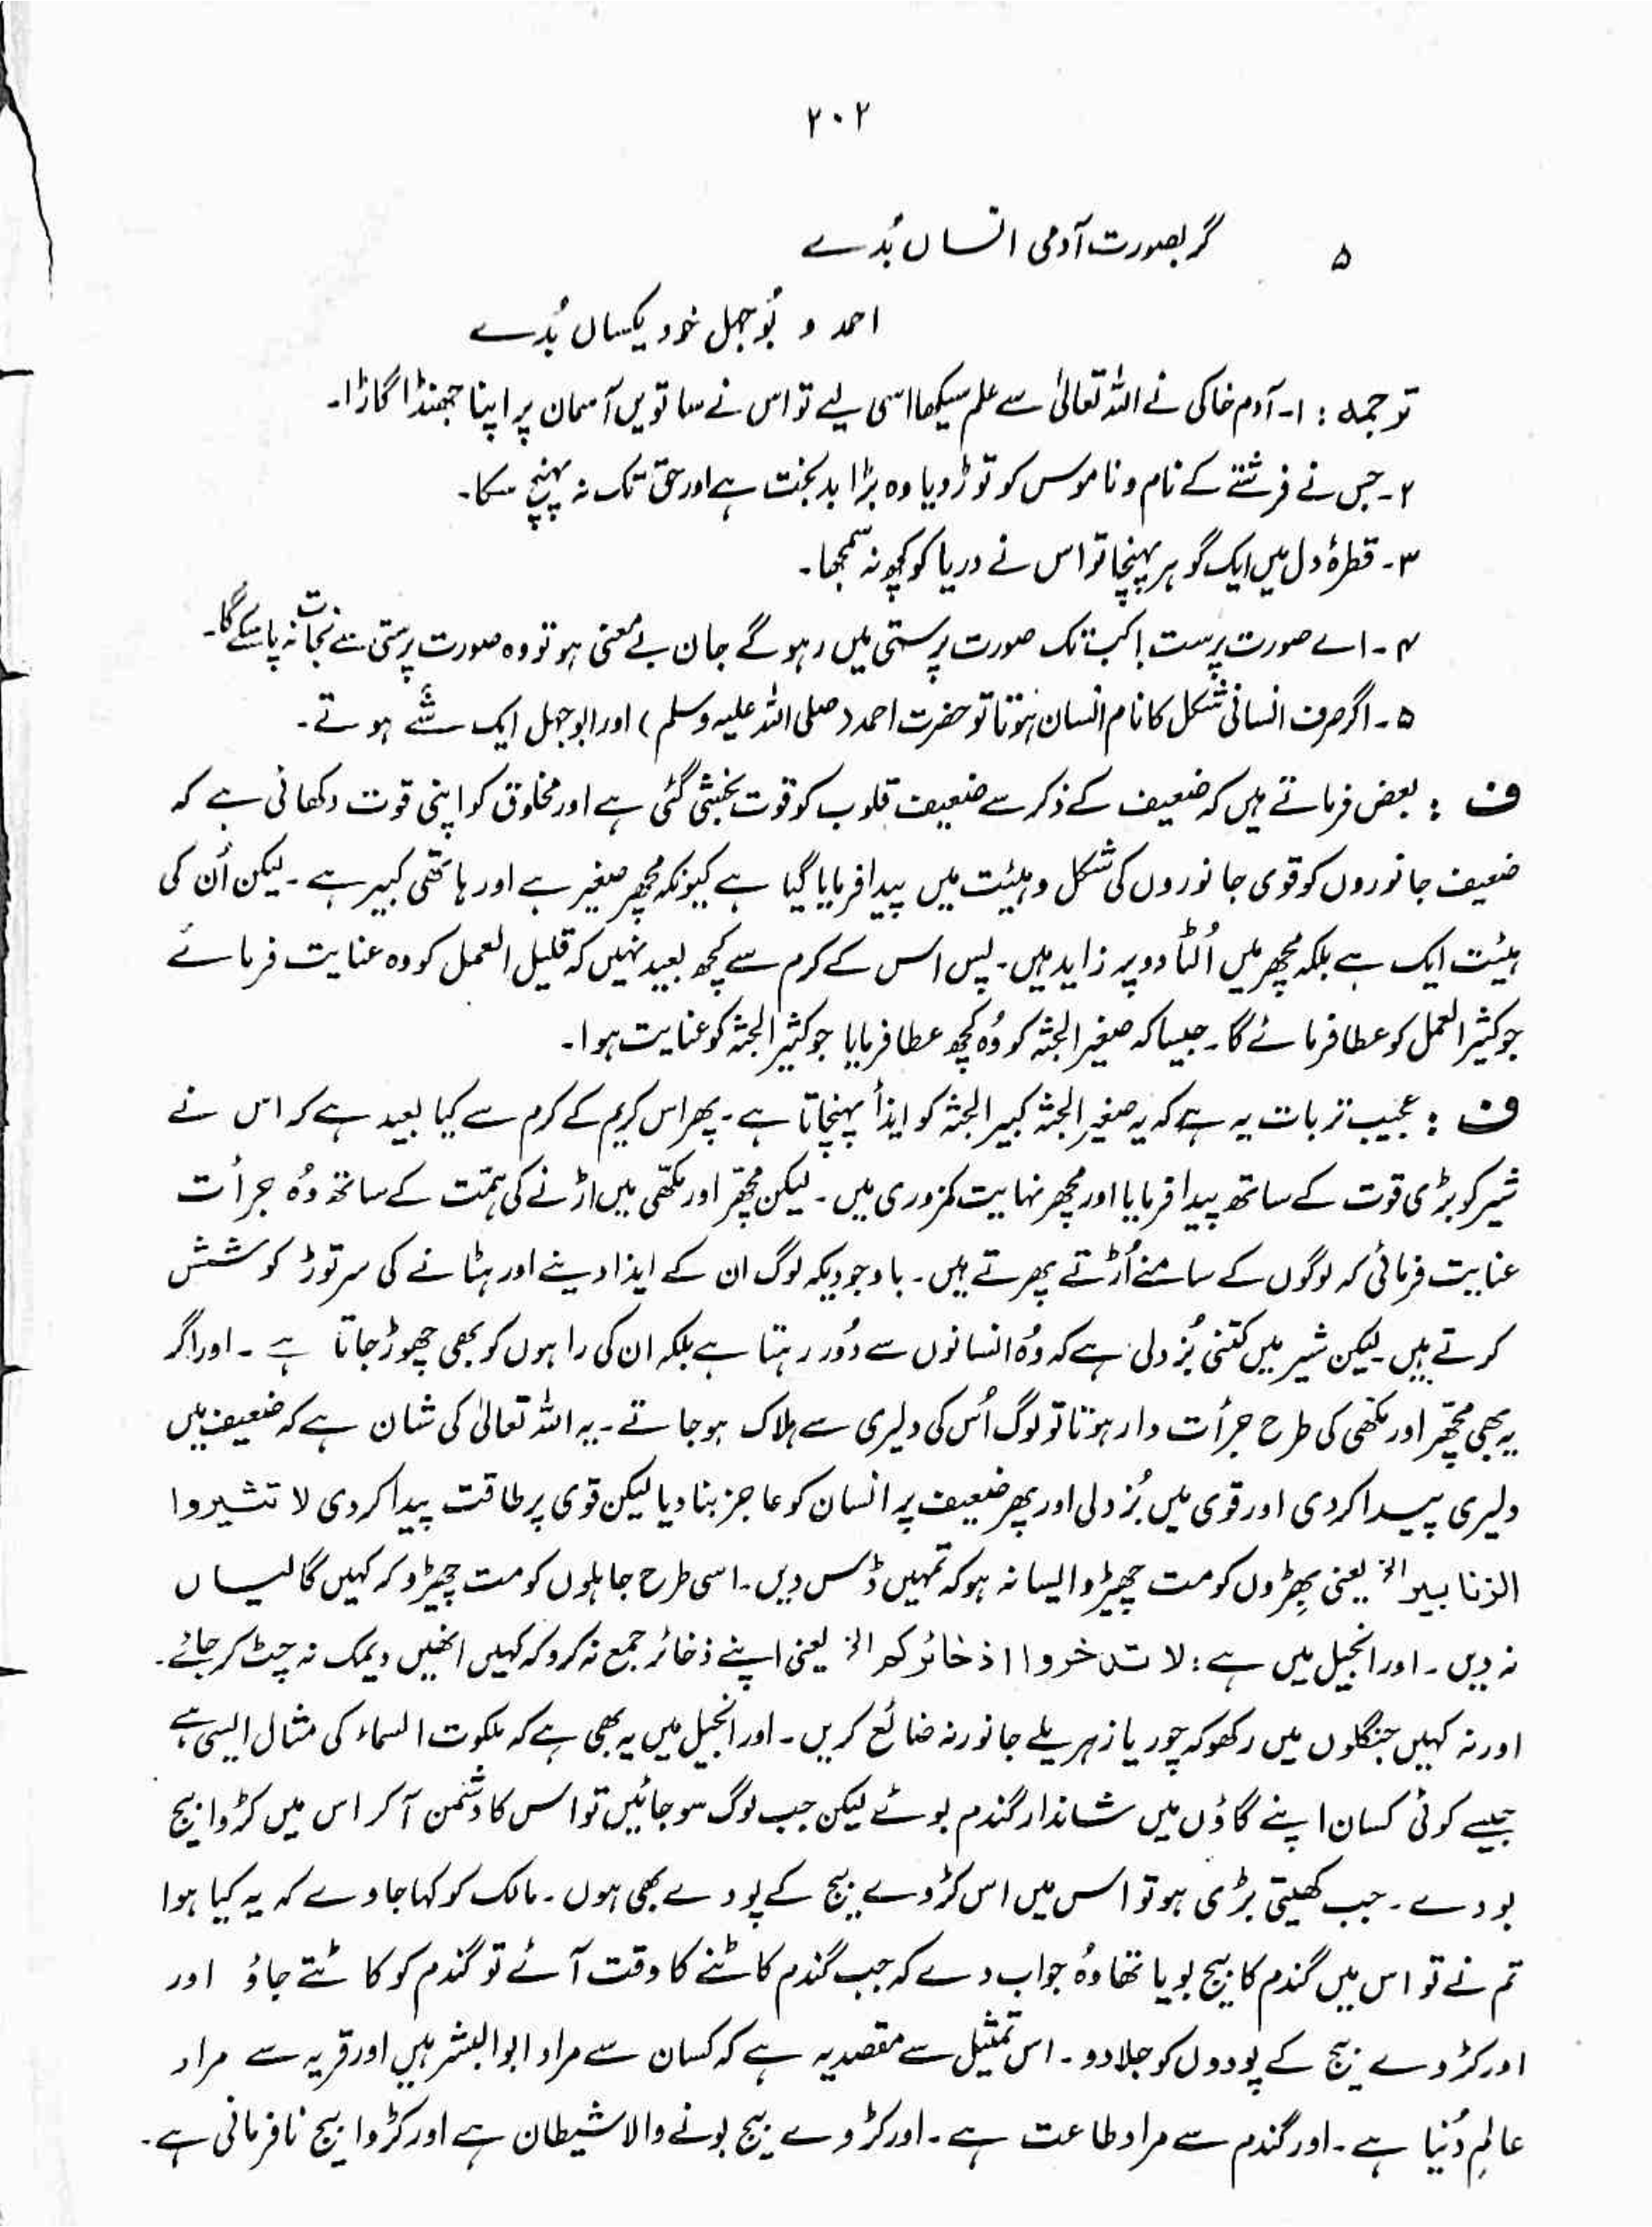 ۲۰۲
۵ گر بصورت آدمی انساں بُدے
احمد و بُوجہل خود یکساں بُدے
ترجمہ : ۱۔ آدم خاکی نے اللہ تعالیٰ سے علم سیکھا اسی لیے تو اس نے ساتویں آسمان پر اپنا جھنڈا گاڑا۔
۲۔ جس نے فرشتے کے نام و ناموس کو توڑ دیا وہ بڑا بدبخت ہے اور حق تک نہ پہنچ سکا۔
۳۔ قطرۂ دل میں ایک گوہر پہنچا تو اس نے دریا کو کچھ نہ سمجھا۔
۴۔ اے صورت پرست! کب تک صورت پرستی میں رہو گے جان بے معنی ہو تو وہ صورت پرستی سے نجات نہ پا سکے گا۔
۵۔ اگر صرف انسانی شکل کا نام انسان ہوتا تو حضرت احمد (صلی اللہ علیہ وسلم) اور ابوجہل ایک شَے ہوتے۔
ف : بعض فرماتے ہیں کہ ضعیف کے ذکر سے ضعیف قلوب کو قوت بخشی گئی ہے اور مخلوق کو اپنی قوت دکھائی ہے کہ
ضعیف جانوروں کو قوی جانوروں کی شکل و ہیئت میں پیدا فرمایا گیا ہے کیونکہ مچھر صغیر ہے اور ہاتھی کبیر ہے۔ لیکن اُن کی
ہیئت ایک ہے بلکہ مچھر میں اُلٹا دو پر زاید ہیں۔ پس اس کے کرم سے کچھ بعید نہیں کہ قلیل العمل کو وہ عنایت فرمائے
جو کثیر العمل کو عطا فرمائے گا۔ جیسا کہ صغیر الجثہ کو وُہ کچھ عطا فرمایا جو کثیر الجثہ کو عنایت ہوا۔
ف : عجیب تر بات یہ ہے کہ یہ صغیر الجثہ کبیر الجثہ کو ایذأ پہنچاتا ہے۔ پھر اس کریم کے کرم سے کیا بعید ہے کہ اس نے
شیر کو بڑی قوت کے ساتھ پیدا فرمایا اور مچھر نہایت کمزوری میں۔ لیکن مچھّر اور مکھّی میں اڑنے کی ہمّت کے ساتھ وُہ جرأت
عنایت فرمائی کہ لوگوں کے سامنے اُڑتے پھرتے ہیں۔ باوجودیکہ لوگ ان کے ایذا دینے اور ہٹانے کی سر توڑ کوشش
کرتے ہیں۔ لیکن شیر میں کتنی بُزدلی ہے کہ وُہ انسانوں سے دُور رہتا ہے بلکہ ان کی راہوں کو بھی چھوڑ جاتا ہے۔ اور اگر
یہ بھی مچھّر اور مکھی کی طرح جرأت دار ہوتا تو لوگ اُس کی دلیری سے ہلاک ہو جاتے۔ یہ اللہ تعالیٰ کی شان ہے کہ ضعیف میں
دلیری پیدا کر دی اور قوی میں بُزدلی اور پھر ضعیف پر انسان کو عاجز بنا دیا لیکن قوی پر طاقت پیدا کر دی لا تشیروا
الزنابیر الخ یعنی بِھڑوں کو مت چھیڑو ایسا نہ ہو کہ تمہیں ڈس دیں۔ اسی طرح جاہلوں کو مت چھیڑو کہ کہیں گالیاں
نہ دیں۔ اور انجیل میں ہے : لا تدخروا اذخائرکم الخ یعنی اپنے ذخائر جمع نہ کرو کہ کہیں انھیں دیمک نہ چٹ کر جائے۔
اور نہ کہیں جنگلوں میں رکھو کہ چور یا زہریلے جانور نہ ضائع کریں۔ اور انجیل میں یہ بھی ہے کہ ملکوت السماء کی مثال ایسی ہے
جیسے کوئی کسان اپنے گاؤں میں شاندار گندم بوئے لیکن جب لوگ سو جائیں تو اس کا دشمن آ کر اس میں کڑوا بیج
بو دے۔ جب کھیتی بڑی ہو تو اس میں اس کڑوے بیج کے پودے بھی ہوں۔ مالک کو کہا جاوے کہ یہ کیا ہوا
تم نے تو اس میں گندم کا بیج بویا تھا وُہ جواب دے کہ جب گندم کاٹنے کا وقت آئے تو گندم کو کاٹتے جاؤ اور
اور کڑوے بیج کے پودوں کو جلا دو۔ اس تمثیل سے مقصد یہ ہے کہ کسان سے مراد ابوالبشر ہیں اور قریہ سے مراد
عالمِ دُنیا ہے۔ اور گندم سے مراد طاعت ہے۔ اور کڑوے بیج بونے والا شیطان ہے اور کڑوا بیج نافرمانی ہے۔